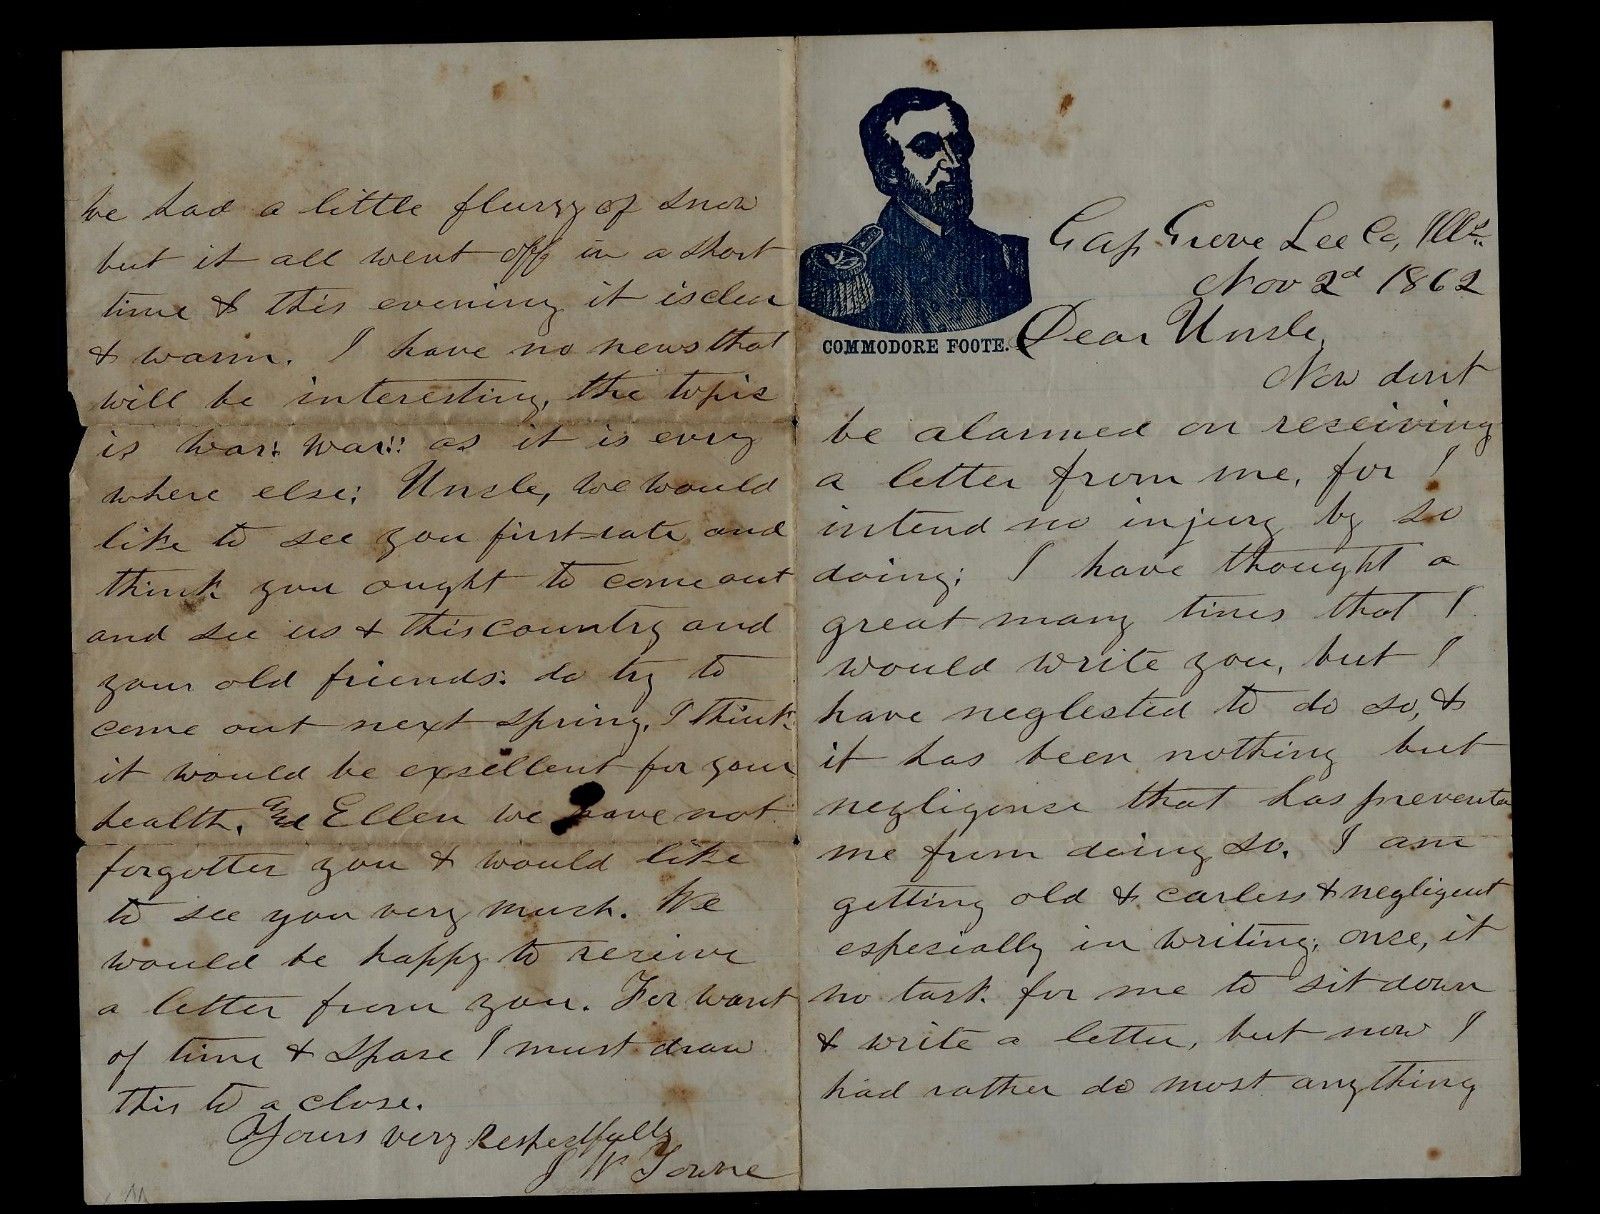 COMMODORE FOOTE.
Gap Grove Lee Co, Ills.
Nov 2d 1862
Dear Uncle,
Now dont
be alarmed on receiving
a letter from me, for I
intend no injury by so
doing; I have thought a
great many times that I
would write you, but I
have neglected to do so, &
it has been nothing but
negligence that has prevented
me from doing so. I am
getting old & carless & negligent
especially in writing; once, it
no task for me to sit down
& write a letter, but now I
had rather do most anything
We had a little flurry of snow
but it all went off in a short
time & this evening it is clear
& warm. I have no news that
will be interesting, the topic
is war! war!! as it is every
where else; Uncle, we would
like to see you first-rate and
think you ought to come out
and see us & this country and
your old friends; do try to
come out next spring, I think
it would be excellent for your
health. And Ellen we have not
forgotten you & would like
to see you very much. We
would be happy to receive
a letter from you. For want
of time & space I must draw
this to a close.
Yours very respectfully
J W Towne